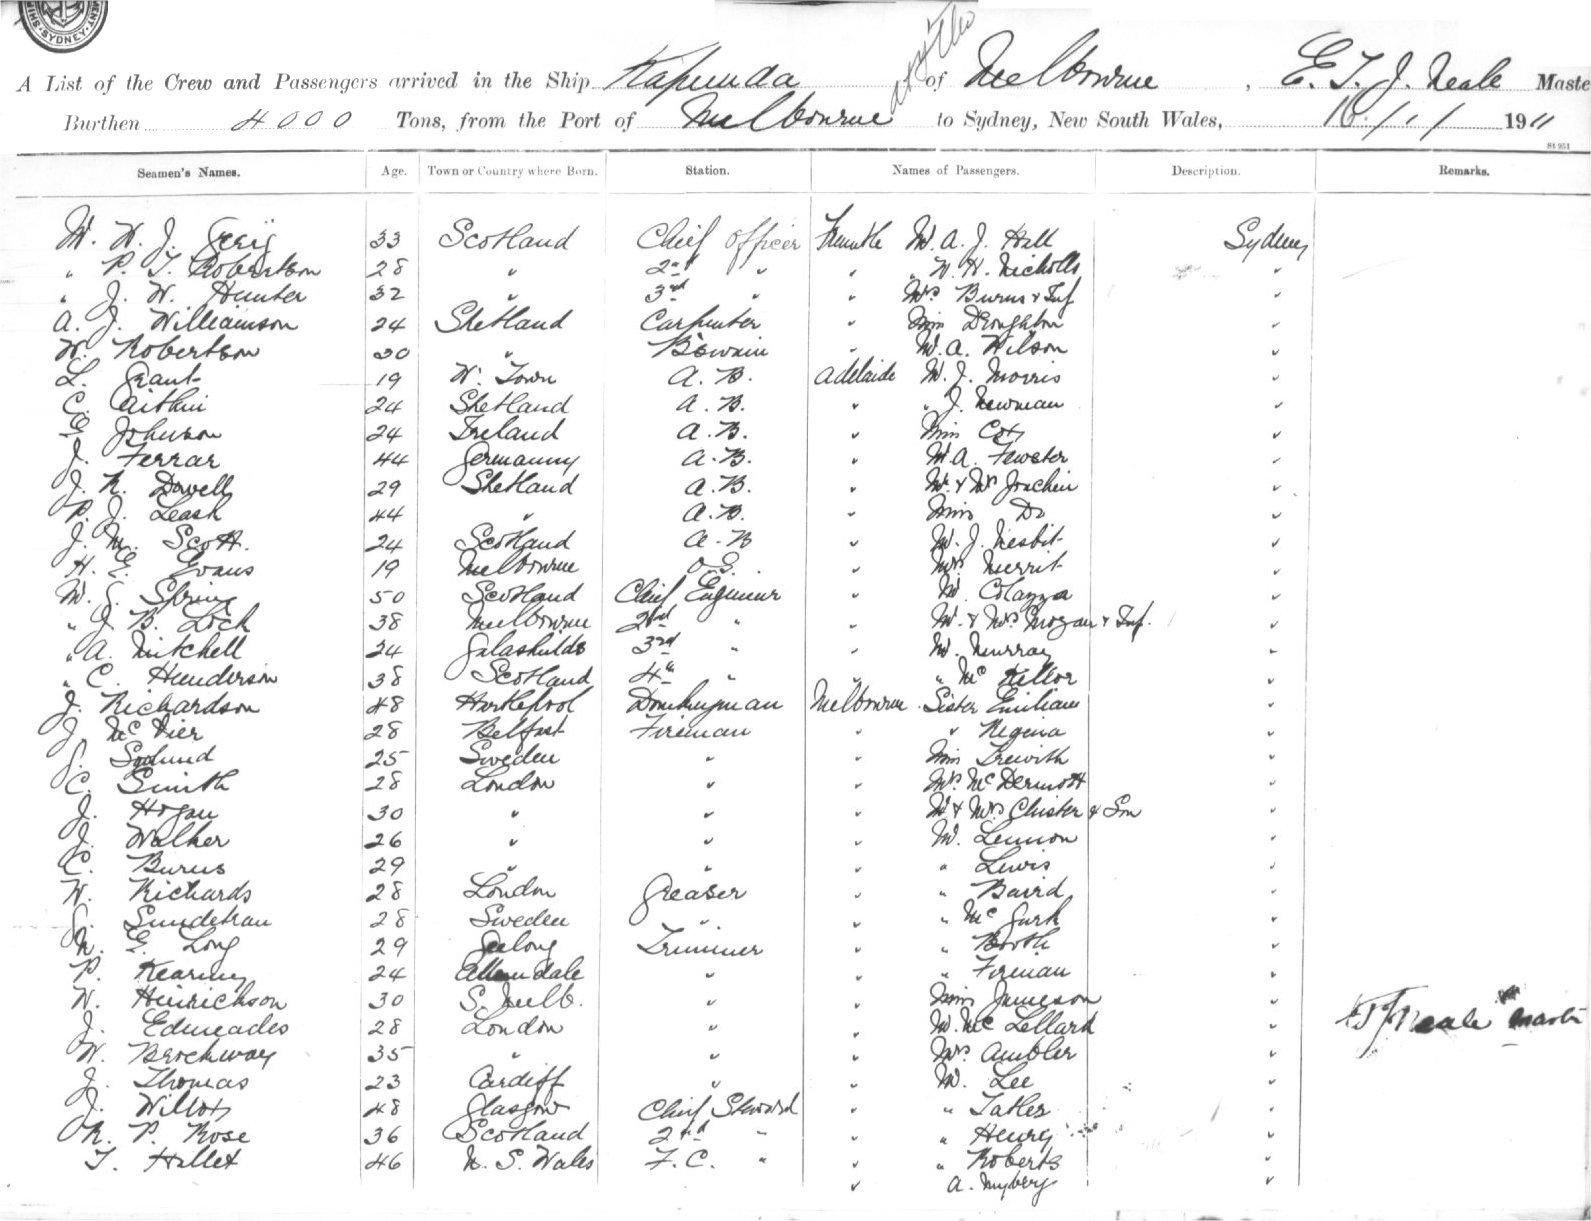 SYDNEY
A List of the Crew and Passengers arrived in the Ship Kapunda of Melbourne, E. T. J. Neale Maste
Burthen 4000 Tons, from the Port of Melbourne to Sydney, New South Wales, 16/1/1911
St 951
Seamen's Names. Age. Town or Country where Born. Station. Names of Passengers. Description. Remarks.
M. W. J. Greig 33 Scotland Chief Officer Fremtle Mr A. J. Hall Sydney
" P. T. Robertson 28 " 2nd " " " W. H. Nicholls "
" J. W. Hunter 32 " 3rd " " Mrs Burns & Inf "
A. J. Williamson 24 Shetland Carpenter " Miss Droughton "
W. Robertson 30 " Bswain " Mr A. Wilson "
L. Grant 19 W. Town A. B. Adelaide Mr J. Morris "
C. Aitkin 24 Shetland A. B. " " J. Newman "
E. Johnson 24 Ireland A. B. " Miss Cox "
J. Ferrar 44 Germanny A. B. " Mr A. Fewster "
J. R. Dowell 29 Shetland A. B. " Mr & Mrs Joachim "
P. J. Leask 44 " A. B. " Miss Do "
J. M. Scott. 24 Scotland A. B " Mr J. Nesbit "
H. E. Evans 19 Melbourne O.S. " Mrs Merrit "
M. S. Spring 50 Scotland Chief Engineer " Mr Colazza "
" J. B. Lock 38 Melbourne 2nd " " Mr & Mrs Mogan & Inf. "
" A. Mitchell 24 Galashields 3rd " " Mr Murray "
" C. Henderson 38 Scotland 4th " " " McKellor "
J. Richardson 48 Hartlepool Donkeyman Melbourne Sister Emilian "
J. McVier 28 Belfast Fireman " " Regina "
G. 25 Sweden " " Miss Trewith "
C. Smith 28 London " " Mrs McDermott "
J. Hogan 30 " " " Mr & Mrs Chister & Son "
J. Walker 26 " " " Mr Lennon "
C. Burns 29 " " " " Lewis "
W. Richards 28 London Greaser " " Baird "
G. 28 Sweden " " " McGurk "
N. E. Long 29 Geelong Trimmer " " Booth "
P. Kearney 24 Allendale " " " Fireman "
W. Hinrichson 30 S. Melb. " " Miss Jameson "
J. Edmeades 28 London " " Mr McLellard "
E T J Neale Master
W. Brockway 35 " " " Mrs Ambler "
J. Thomas 23 Cardiff " " Mr Lee "
J. Willox 48 Glasgow Chief Steward " " Tatler "
R. P. Rose 36 Scotland 2nd " " " Henry "
T. Hallet 46 N. S. Wales F. C. " " " Roberts "
" A. Myberg "